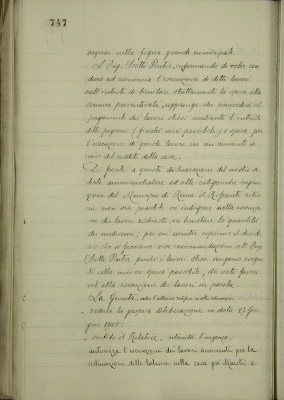 747
acqua nella fogna grande municipale.
L'Ing. Piatti Pinter, informando di voler con
durre ad economia l'esecuzione di detti lavori
nell'intento di limitare strettamente la spesa alla
somma preventivata, aggiunge che provvederà al
pagamento dei lavori stessi mediante l'entrate
delle pigioni (finché sarà possibile) e spera per
l'esecuzione di questi lavori in un aumento a
nuo del reddito della casa.
Di fronte a queste dichiarazioni del nostro a
bile amministratore ed alle categoriche ingiun
zioni del Municipio di Roma il Referente ritie
ne non sia possibile un indugio nella esecuzio
ne dei lavori richiesti, né limitare la quantità
dei medesimi; per cui mentre esprime il desi
derio che si facciano vive raccomandazioni all'Ing.
Piatti Pinter perché i lavori stessi vengano esegui
ti colla minore spesa possibile, dà voto favore
vole alla esecuzione dei lavori in parola.
La Giunta
veduta la propria deliberazione in data Giu
gno 1905.
sentito il Relatore; ritenuta l'urgenza;
autorizza l'esecuzione dei lavori occorrenti per la
sistemazione delle latrine nella casa pei Maestri e